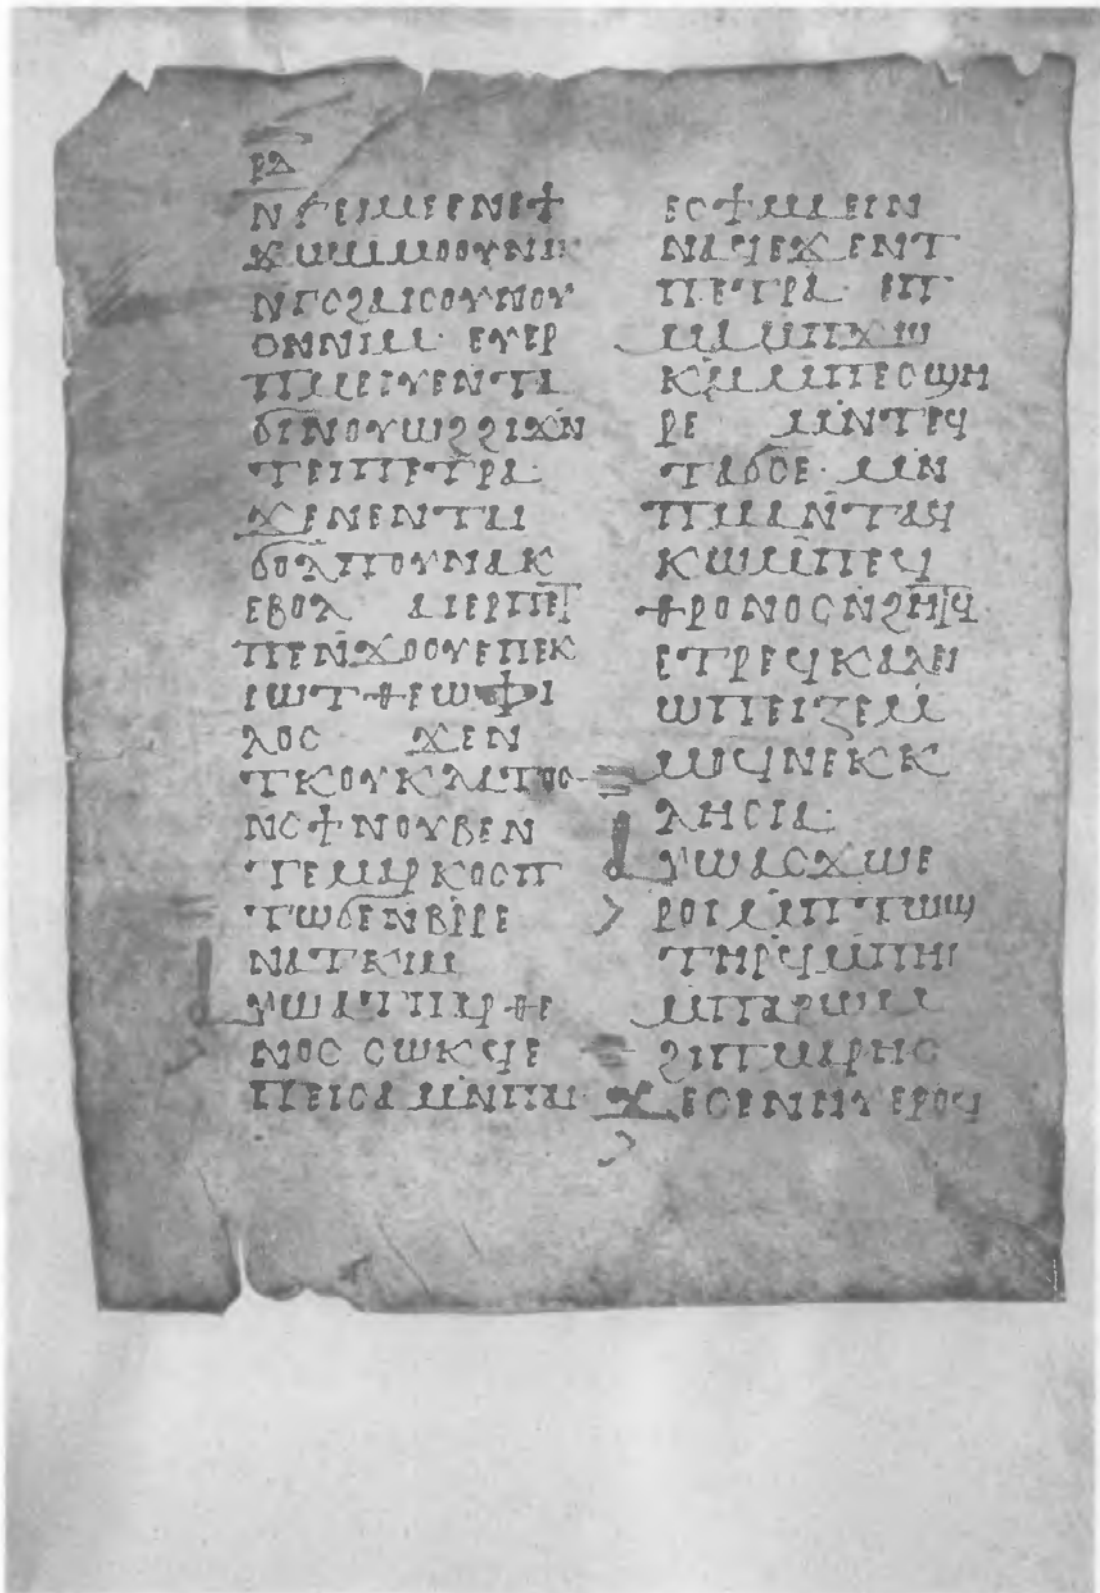 ⲣⲇ
ⲛⲅⲉⲓⲙⲉⲉⲛⲉϯ
ϫⲱⲙⲙⲟⲟⲩⲛⲁⲕ
ⲛⲅⲥϩⲁⲓⲥⲟⲩⲛⲟⲩ
ⲟⲛⲛⲓⲙ· ⲉⲩⲉⲣ
ⲡⲙⲉⲉⲩⲉⲛⲧⲁ
ϭⲓⲛⲟⲩⲱϩϩⲓϫⲛ
ⲧⲉⲓⲡⲉⲧⲣⲁ·
ϫⲉⲛⲉⲛⲧⲁⲓ
ϭⲟⲗⲡⲟⲩⲛⲁⲕ
ⲉⲃⲟⲗ ⲁⲓⲉⲣⲡⲉⲧ
ⲡⲉⲛϫⲟⲟⲩⲉⲡⲉⲕ
ⲓⲱⲧⲑⲉⲱⲫⲓ
ⲗⲟⲥ ϫⲉⲛ
ⲧⲕⲟⲩⲕⲗⲁⲧⲟⲥ
ⲛⲥϯⲛⲟⲩⲃⲉⲛ
ⲧⲉⲙⲁⲣⲕⲟⲥⲡ
ⲧⲱϭⲉⲛⲃⲣⲣⲉ
ⲛⲁⲧⲕⲓⲙ
ⲁⲩⲱⲁⲧⲡⲁⲣⲑⲉ
ⲛⲟⲥ ⲥⲱⲕϥⲉ
ⲡⲉⲓⲥⲁ ⲙⲛⲡⲁⲓ
ⲉⲥϯⲙⲁⲉⲓⲛ
ⲛⲁϥⲉϫⲉⲛⲧ
ⲡⲉⲧⲣⲁ· ⲉⲡ
ⲙⲁⲙⲡϫⲱ
ⲕⲙⲙⲡⲉⲥϣⲏ
ⲣⲉ ⲙⲛⲧⲉϥ
ⲧⲁϭⲥⲉ· ⲙⲛ
ⲡⲙⲁⲛⲧⲁϥ
ⲕⲱⲙⲡⲉϥ
ⲑⲣⲟⲛⲟⲥⲛϩⲏⲧϥ
ⲉⲧⲣⲉϥⲕⲁⲗⲉⲓ
ⲱⲡⲉⲓⲍⲉⲙ
ⲙⲟϥⲛⲉⲕⲕ
ⲗⲏⲥⲓⲁ·
ⲁⲩⲱⲁⲥϫⲱⲉ
ⲣⲟⲓⲙⲡⲧⲱϣ
ⲧⲏⲣϥⲙⲡⲏⲓ
ⲙⲡⲁⲣⲱⲙ
ϩⲓⲡⲙⲁⲣⲏⲥ
ϫⲉⲥⲉⲛⲏⲩⲉⲣⲟϥ